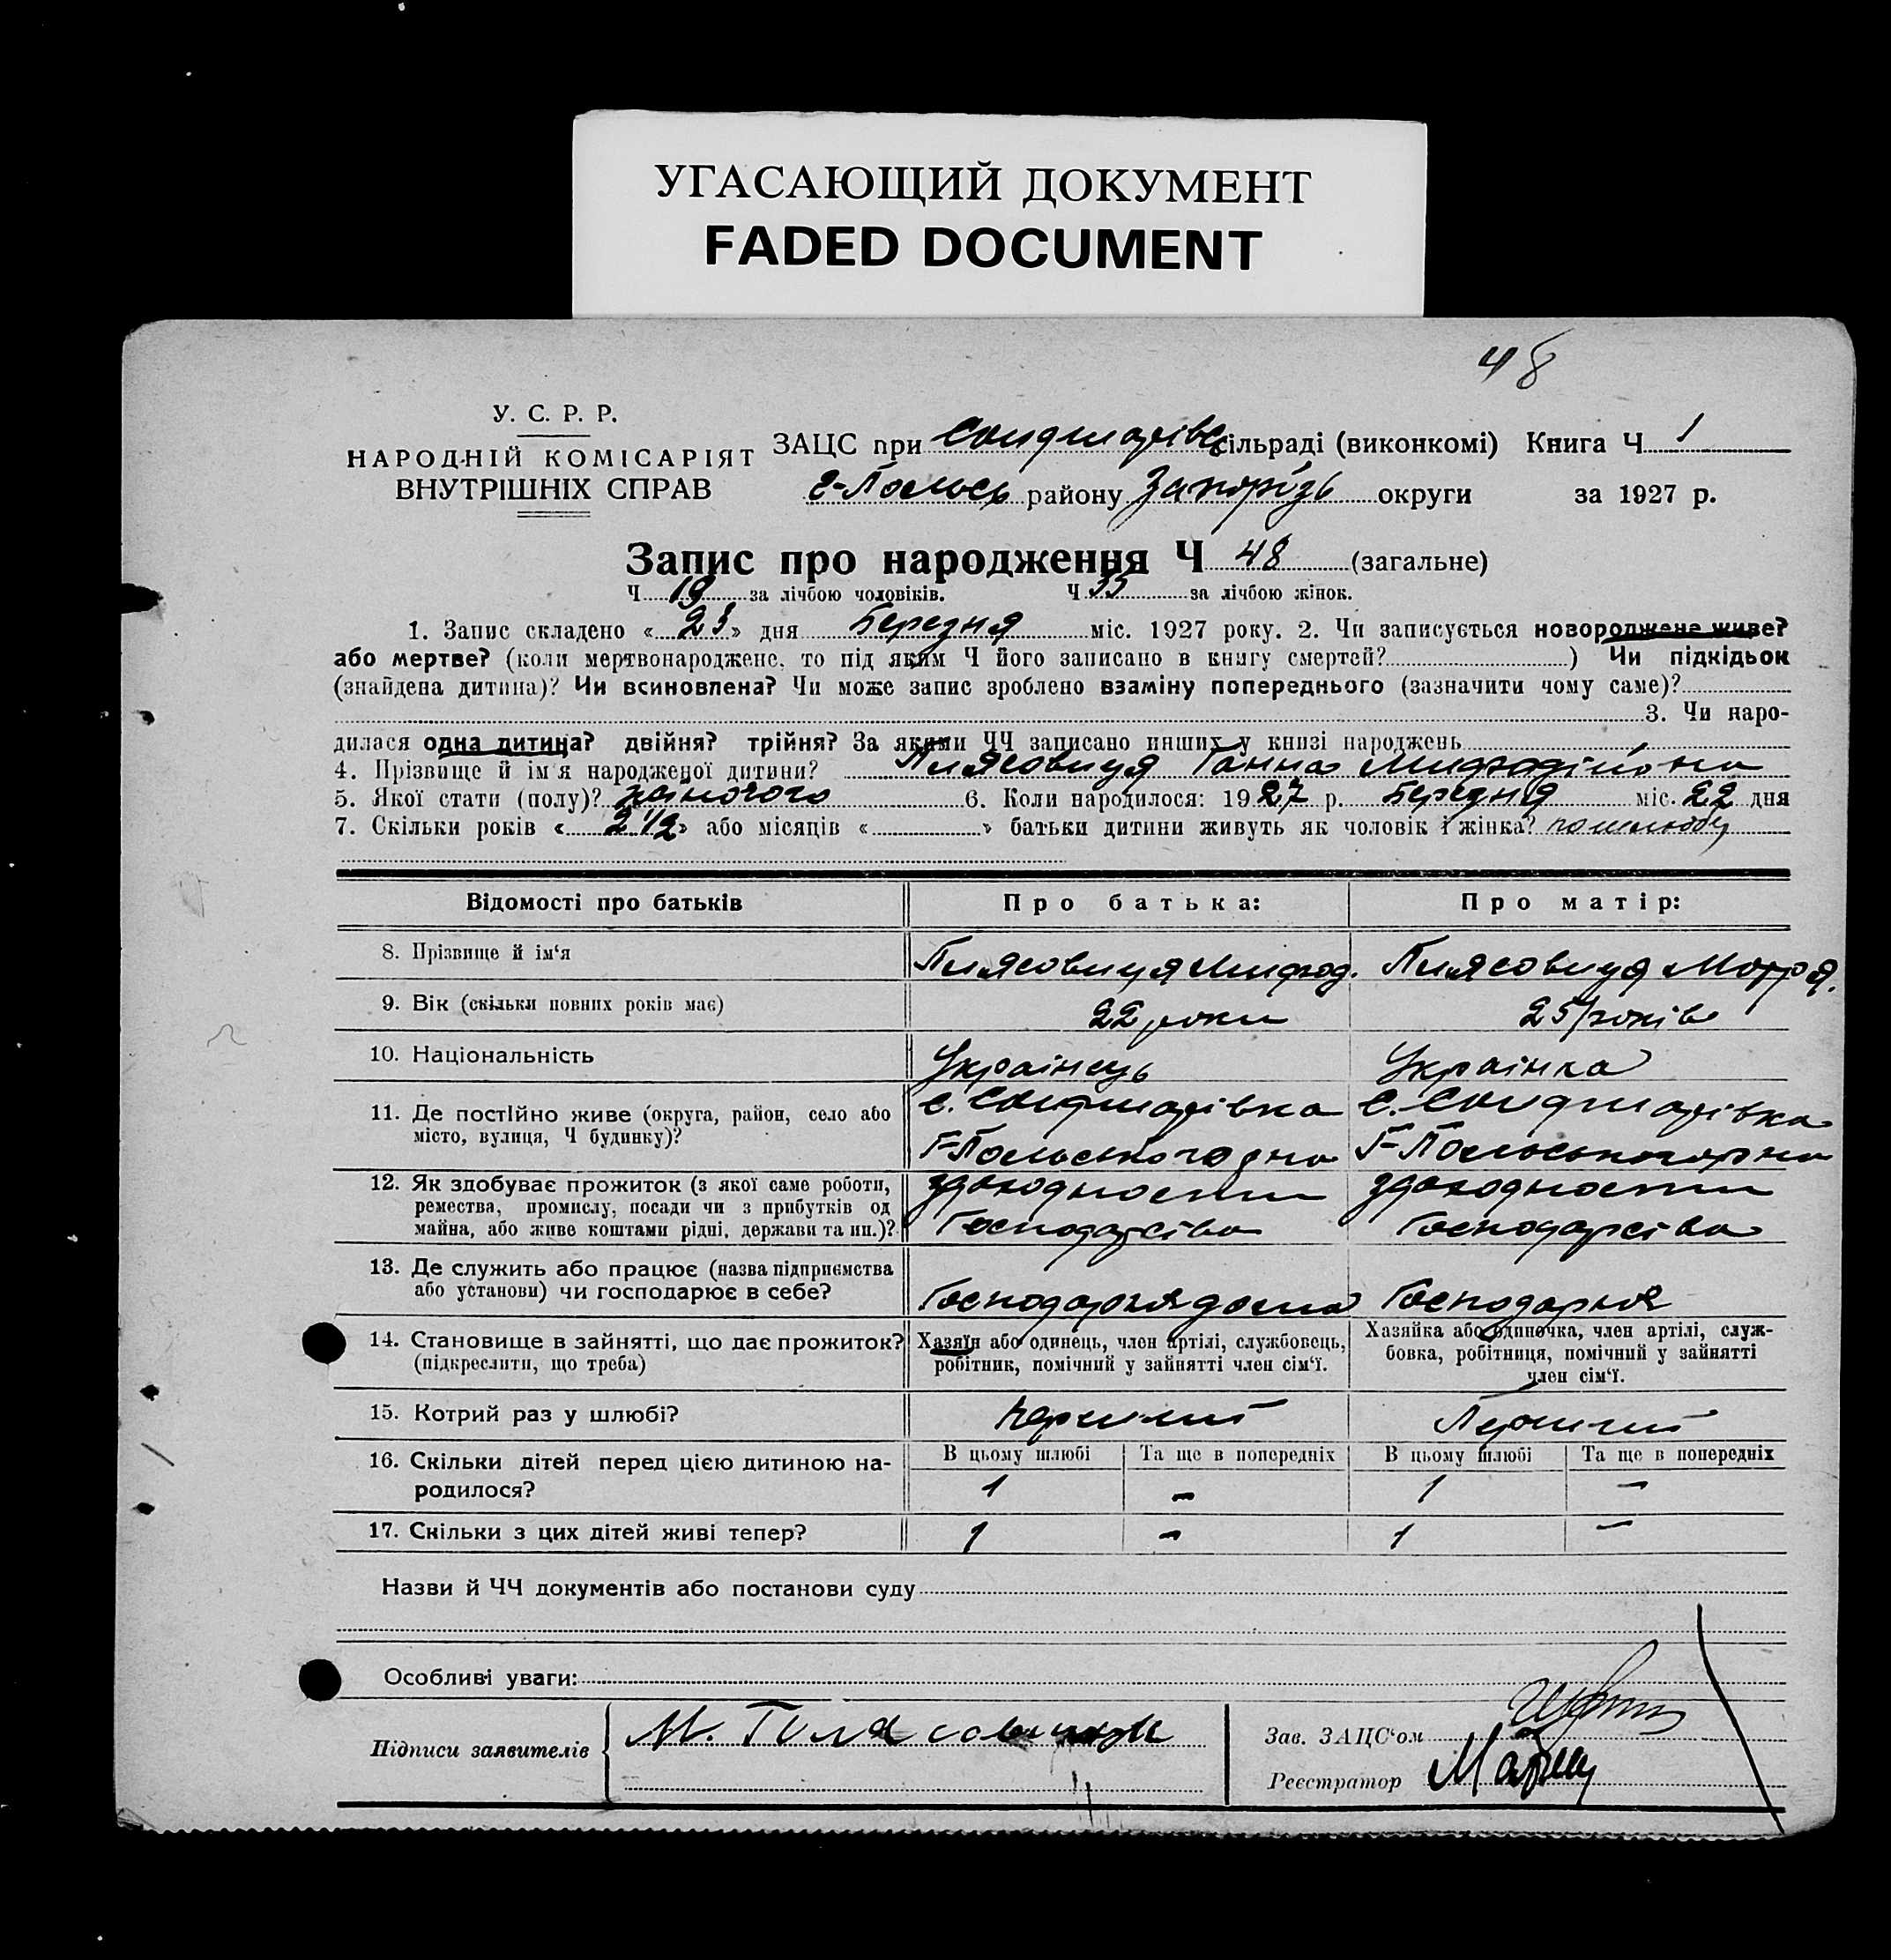 УГАСАЮЩИЙ ДОКУМЕНТ
FADED DOCUMENT
48
У. С. Р. Р.
НАРОДНІЙ КОМІСАРІЯТ
ВНУТРІШНІХ СПРАВ
ЗАЦС при сільраді (виконкомі) Книга Ч 1
району Запорізь округи за 1927 р.
Запис про народження Ч 48 (загальне)
Ч 19 за лічбою чоловіків. Ч за лічбою жінок.
1. Запис складено « 23 » дня Березня міс. 1927 року. 2. Чи записується новороджене живе?
або мертве? (коли мертвонароджене, то під яким Ч його записано в книгу смертей? ) Чи підкідьок
(знайдена дитина)? Чи всиновлена? Чи може запис зроблено взаміну попереднього (зазначити чому саме)?
3. Чи наро-
дилася одна дитина? двійня? трійня? За якими ЧЧ записано инших у книзі народжень
4. Прізвище й ім'я народженої дитини? Плясовиця Ганна Мифодійовна
5. Якої стати (полу)? жіночого 6. Коли народилося: 1927 р. Березня міс. 22 дня
7. Скільки років « 2 1/2 » або місяців « » батьки дитини живуть як чоловік і жінка? по шлюбу
Відомості про батьків Про батька: Про матір:
8. Прізвище й ім'я Плясовиця Мифод. Плясовиця Мотря.
9. Вік (скільки повних років має) 22 роки 25 років
10. Національність Українець Українка
11. Де постійно живе (округа, район, село або
місто, вулиця, Ч будинку)?
12. Як здобуває прожиток (з якої саме роботи, здоходности здоходности
ремества, промислу, посади чи з прибутків од
майна, або живе коштами рідні, держави та ин.)? Господарства Господарства
13. Де служить або працює (назва підприємства
або установи) чи господарює в себе? Господарює дома Господарює
14. Становище в зайнятті, що дає прожиток?
(підкреслити, що треба)
Хазяїн або одинець, член артілі, службовець,
робітник, помічний у зайнятті член сім'ї.
Хазяйка або одиночка, член артілі, служ-
бовка, робітниця, помічний у зайнятті
член сім'ї.
15. Котрий раз у шлюбі? Перший Перший
16. Скільки дітей перед цією дитиною на-
родилося?
В цьому шлюбі Та ще в попередніх В цьому шлюбі Та ще в попередніх
1 – 1 –
17. Скільки з цих дітей живі тепер? 1 – 1 –
Назви й ЧЧ документів або постанови суду
Особливі уваги:
Підписи заявителів
Зав. ЗАЦС'ом
Реєстратор